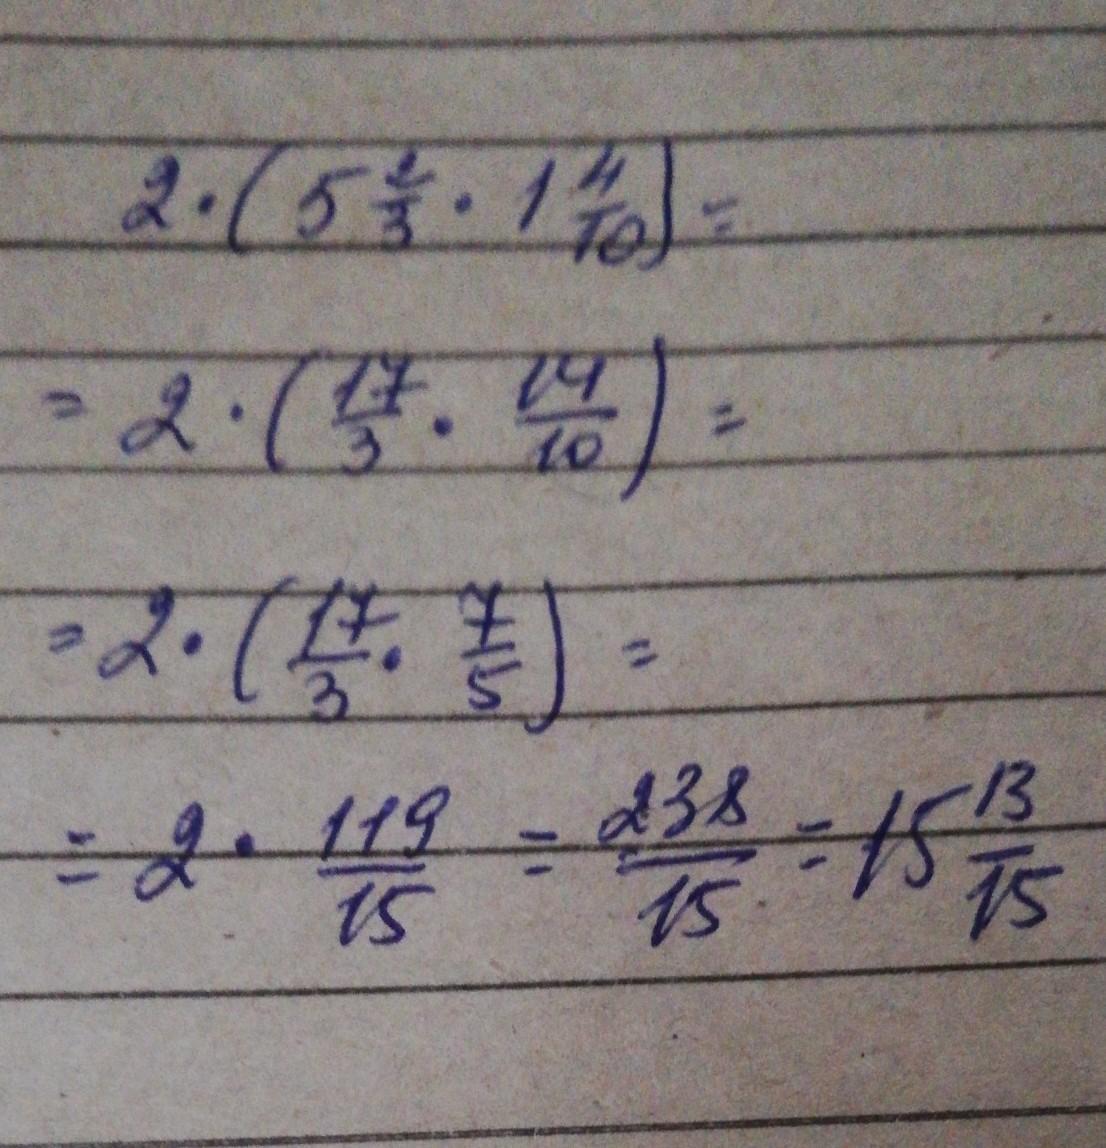 2 · (5 2/3 · 1 4/10) =
= 2 · (17/3 · 14/10) =
= 2 · (17/3 · 7/5) =
= 2 · 119/15 = 238/15 = 15 13/15